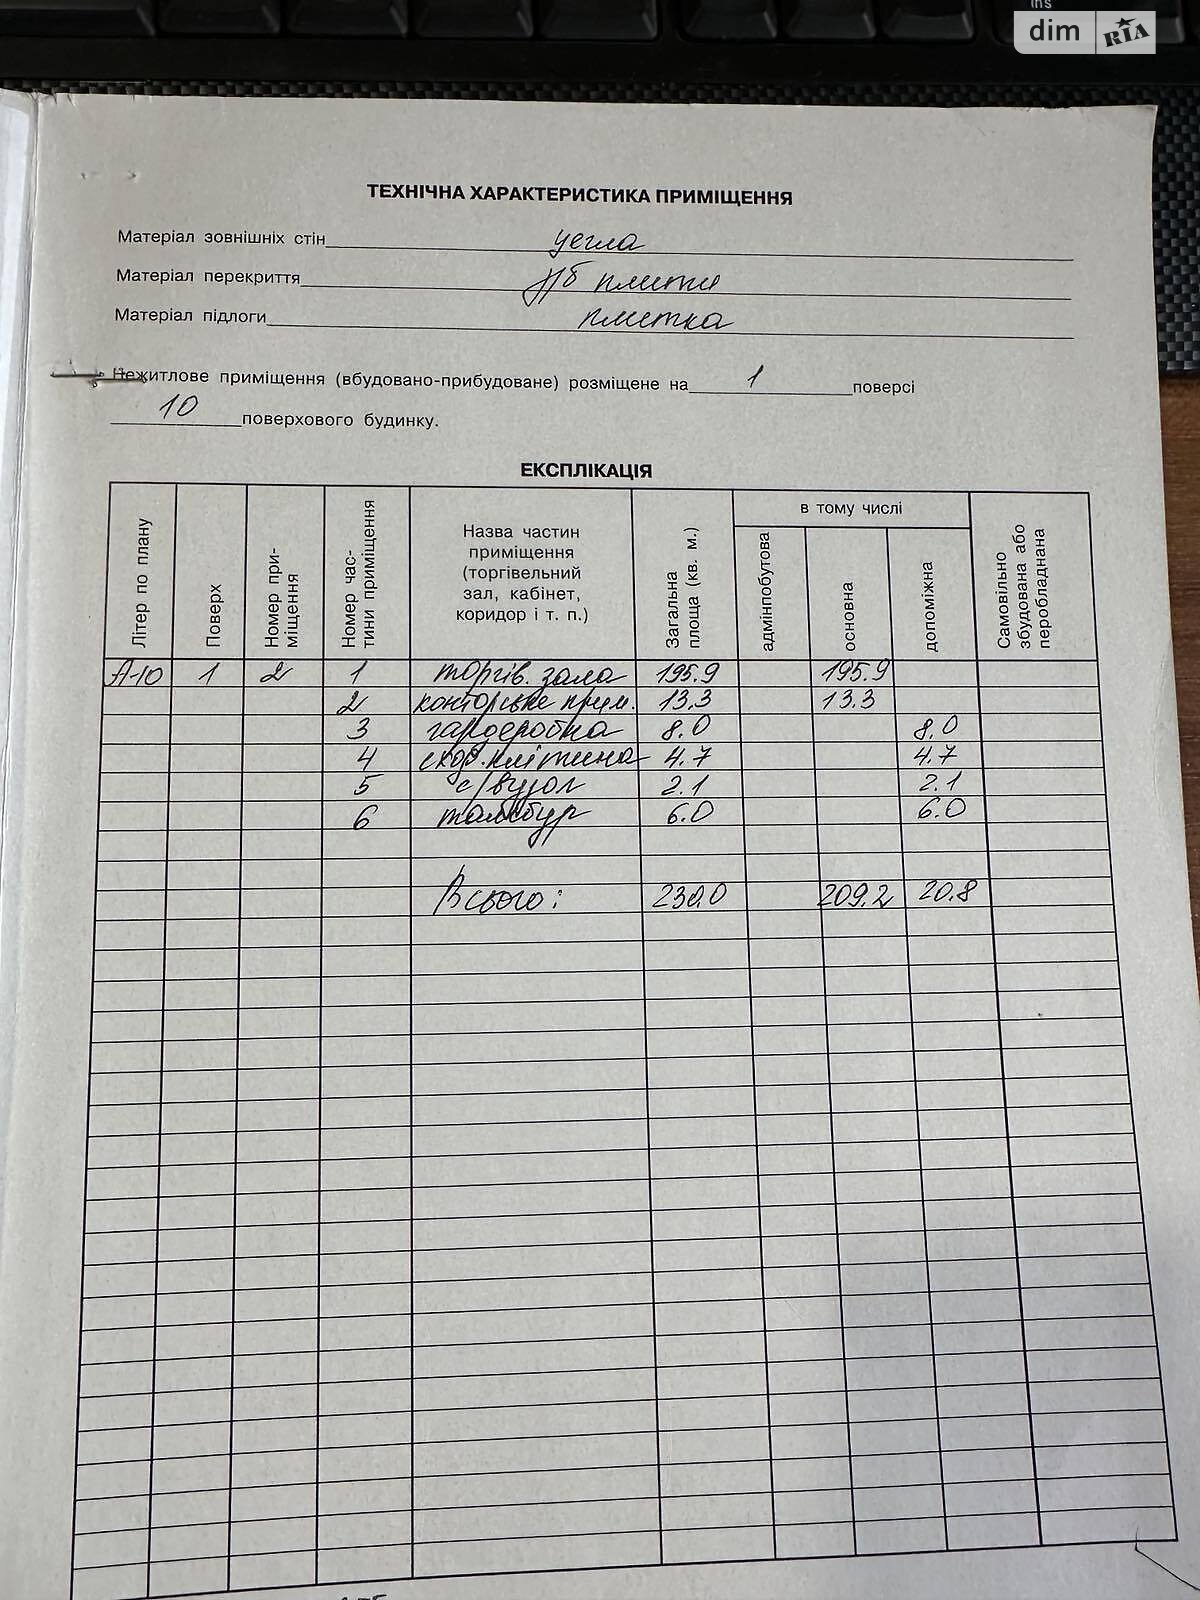 ins
dim RIA
ТЕХНІЧНА ХАРАКТЕРИСТИКА ПРИМІЩЕННЯ
Матеріал зовнішніх стін цегла
Матеріал перекриття з/б плити
Матеріал підлоги плитка
Нежитлове приміщення (вбудовано-прибудоване) розміщене на 1 поверсі
10 поверхового будинку.
ЕКСПЛІКАЦІЯ
Літер по плану
Поверх
Номер при-
міщення
Номер час-
тини приміщення
Назва частин
приміщення
(торгівельний
зал, кабінет,
коридор і т. п.)
Загальна
площа (кв. м.)
в тому числі
адмінпобутова
основна
допоміжна
Самовільно
збудована або
перобладнана
А-10 1 2 1 торгів. зала 195.9 195.9
2 конторське прим. 13.3 13.3
3 гардеробна 8.0 8.0
4 сход. клітина 4.7 4.7
5 с/вузол 2.1 2.1
6 тамбур 6.0 6.0
Всього: 230.0 209.2 20.8